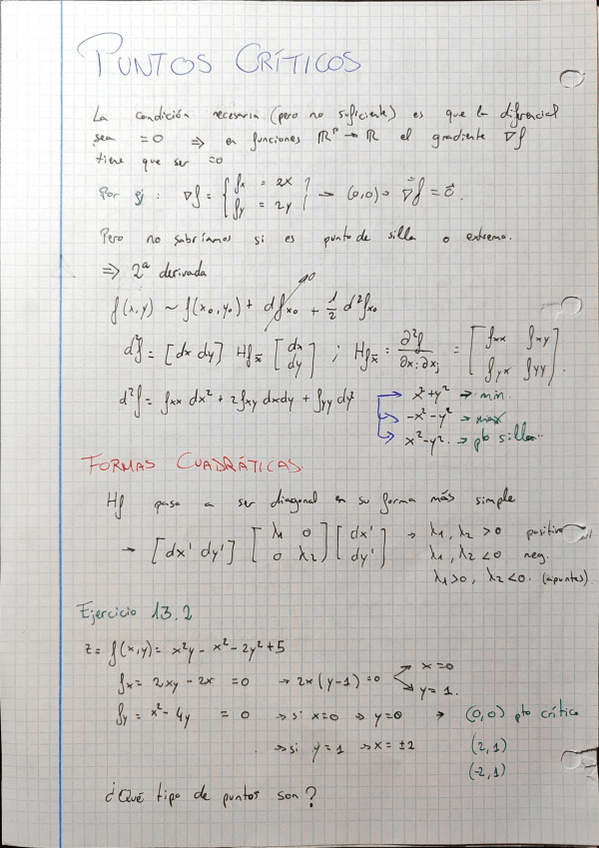 PUNTOS CRÍTICOS
La condición necesaria (pero no suficiente) es que la diferencial
sea =0 ⇒ en funciones ℝᵖ → ℝ el gradiente ∇f
tiene que ser =0
Por ej : ∇f = { fx = 2x, fy = 2y } → (0,0) → ∇⃗f = 0⃗.
Pero no sabríamos si es punto de silla o extremo.
⇒ 2ª derivada
f(x,y) ~ f(x₀,y₀) + df_x₀ → 0 + 1/2 d²f_x₀
d²f = [dx dy] Hf_x̄ [dx; dy] ; Hf_x̄ = ∂²f/∂xᵢ∂xⱼ = [fxx fxy; fyx fyy].
d²f = fxx dx² + 2fxy dxdy + fyy dy² → x²+y² → min.
→ -x²-y² → max
→ x²-y². → pto silla..
FORMAS CUADRÁTICAS
Hf pasa a ser diagonal en su forma más simple
→ [dx' dy'] [λ₁ 0; 0 λ₂] [dx'; dy'] → λ₁, λ₂ >0 positiva
λ₁, λ₂ <0 neg.
λ₁>0, λ₂<0. (apuntes)
Ejercicio 13.2
z = f(x,y) = x²y - x² - 2y² + 5
fx = 2xy - 2x = 0 → 2x(y-1)=0 → x=0
→ y=1.
fy = x² - 4y = 0 → si x=0 → y=0 → (0,0) pto crítico
→ si y=1 → x=±2 (2,1)
(-2,1)
¿Qué tipo de puntos son?